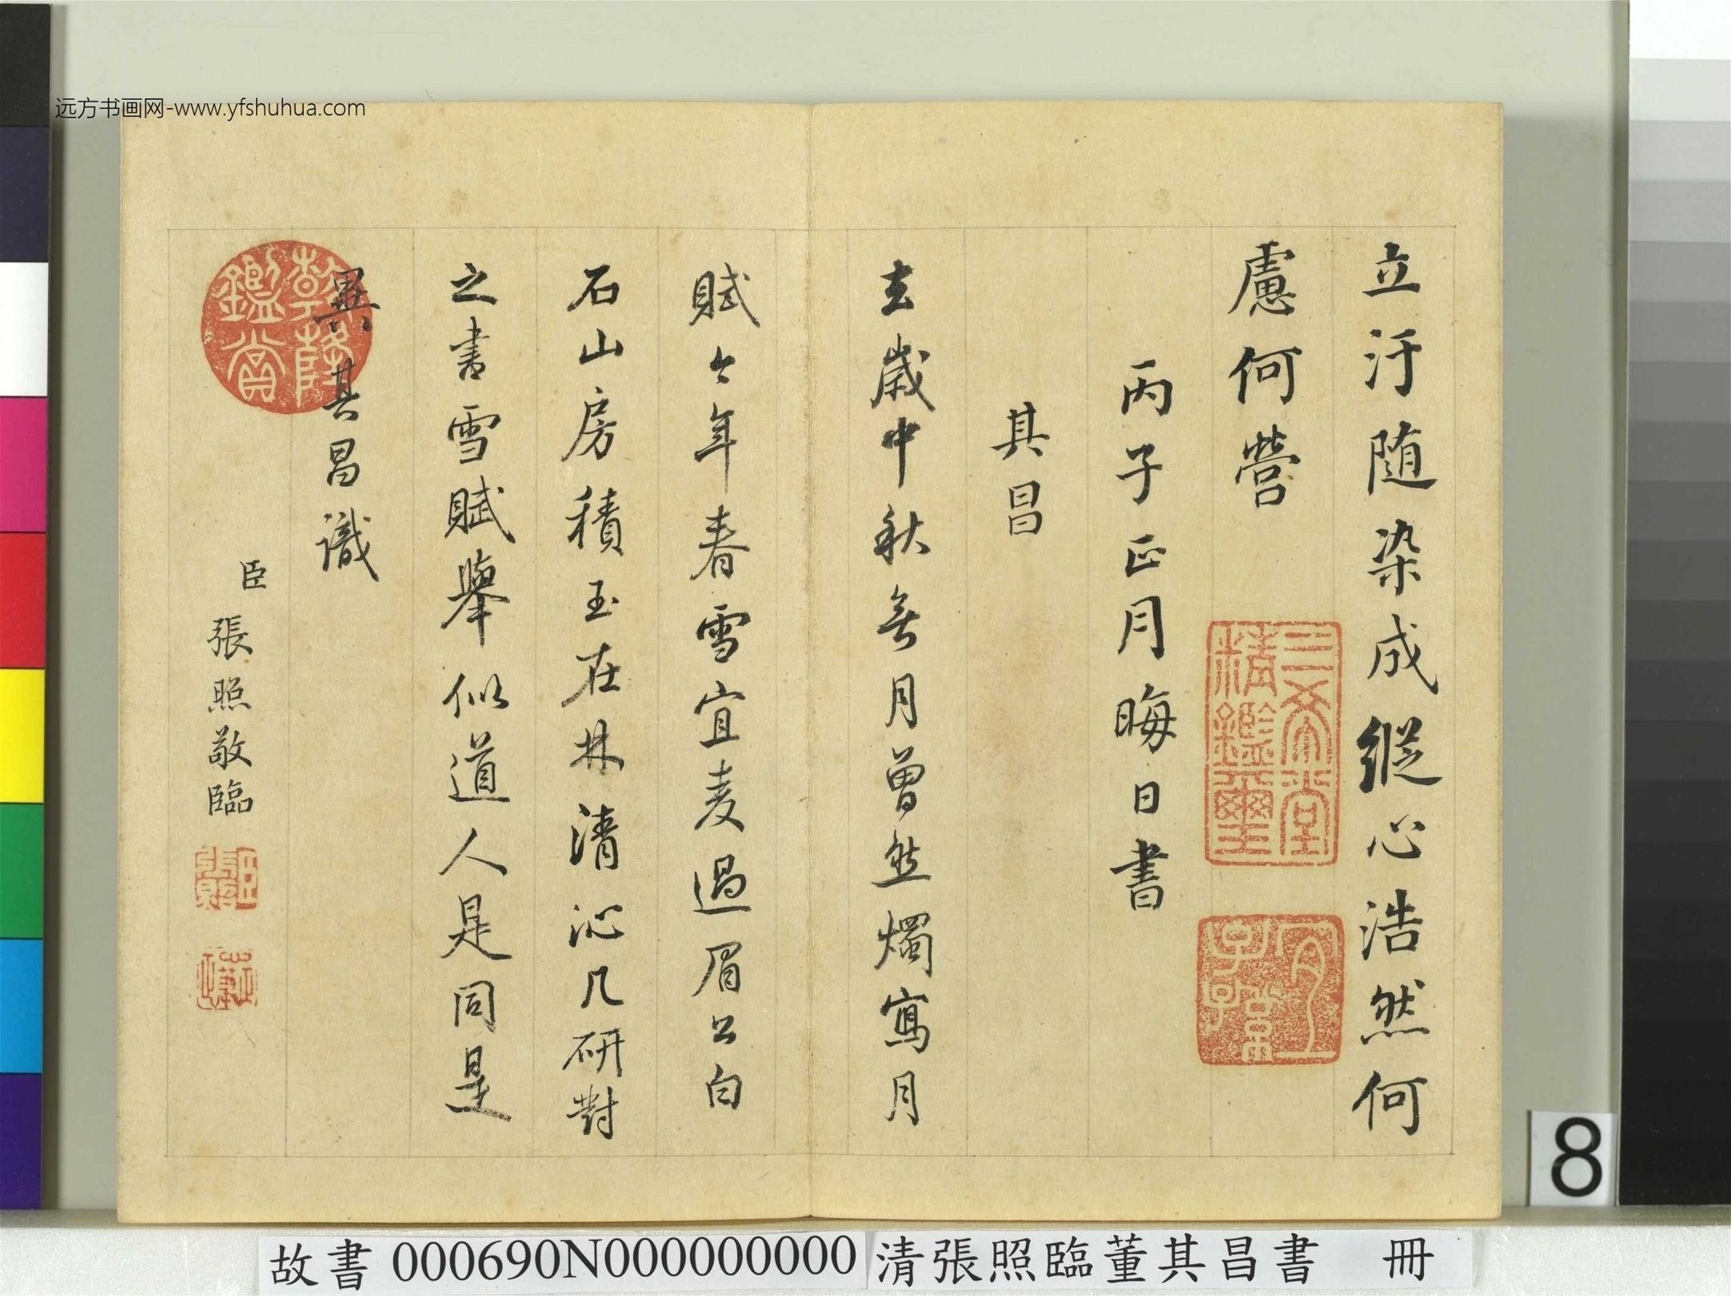 远方书画网-www.yfshuhua.com
立汙随染成縱心浩然何
慮何營
丙子正月晦日書
其昌
去歲中秋無月曾然燭寫月
賦今年春雪宜麦過眉公白
石山房積玉在林清沁几研對
之書雪賦舉似道人是同是
異其昌識
臣
張照敬臨
三希堂
精鑑璽
宜
子孫
乾隆
鑑賞
8
故書 000690N000000000 清張照臨董其昌書 冊